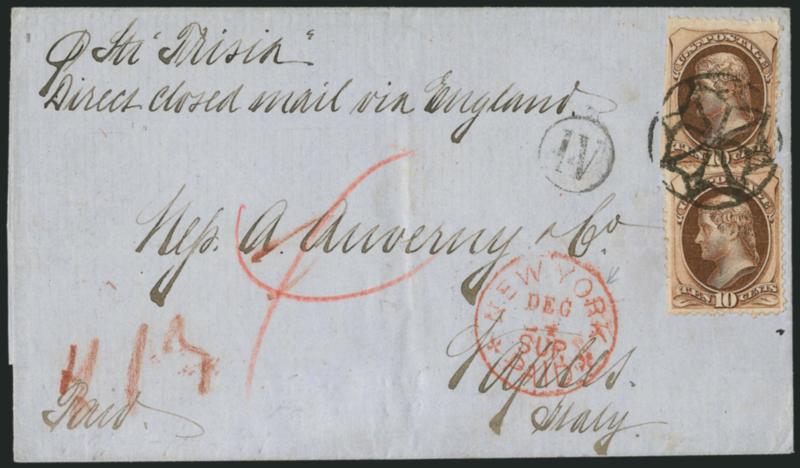 p Str "Frisia"
Direct closed mail via England
IV
Mess. A. Auverny & Co
NEW YORK
DEC
SUP.
PAID
Naples.
Italy.
Paid.
U.S. POSTAGE
TEN 10 CENTS
U.S. POSTAGE
TEN 10 CENTS